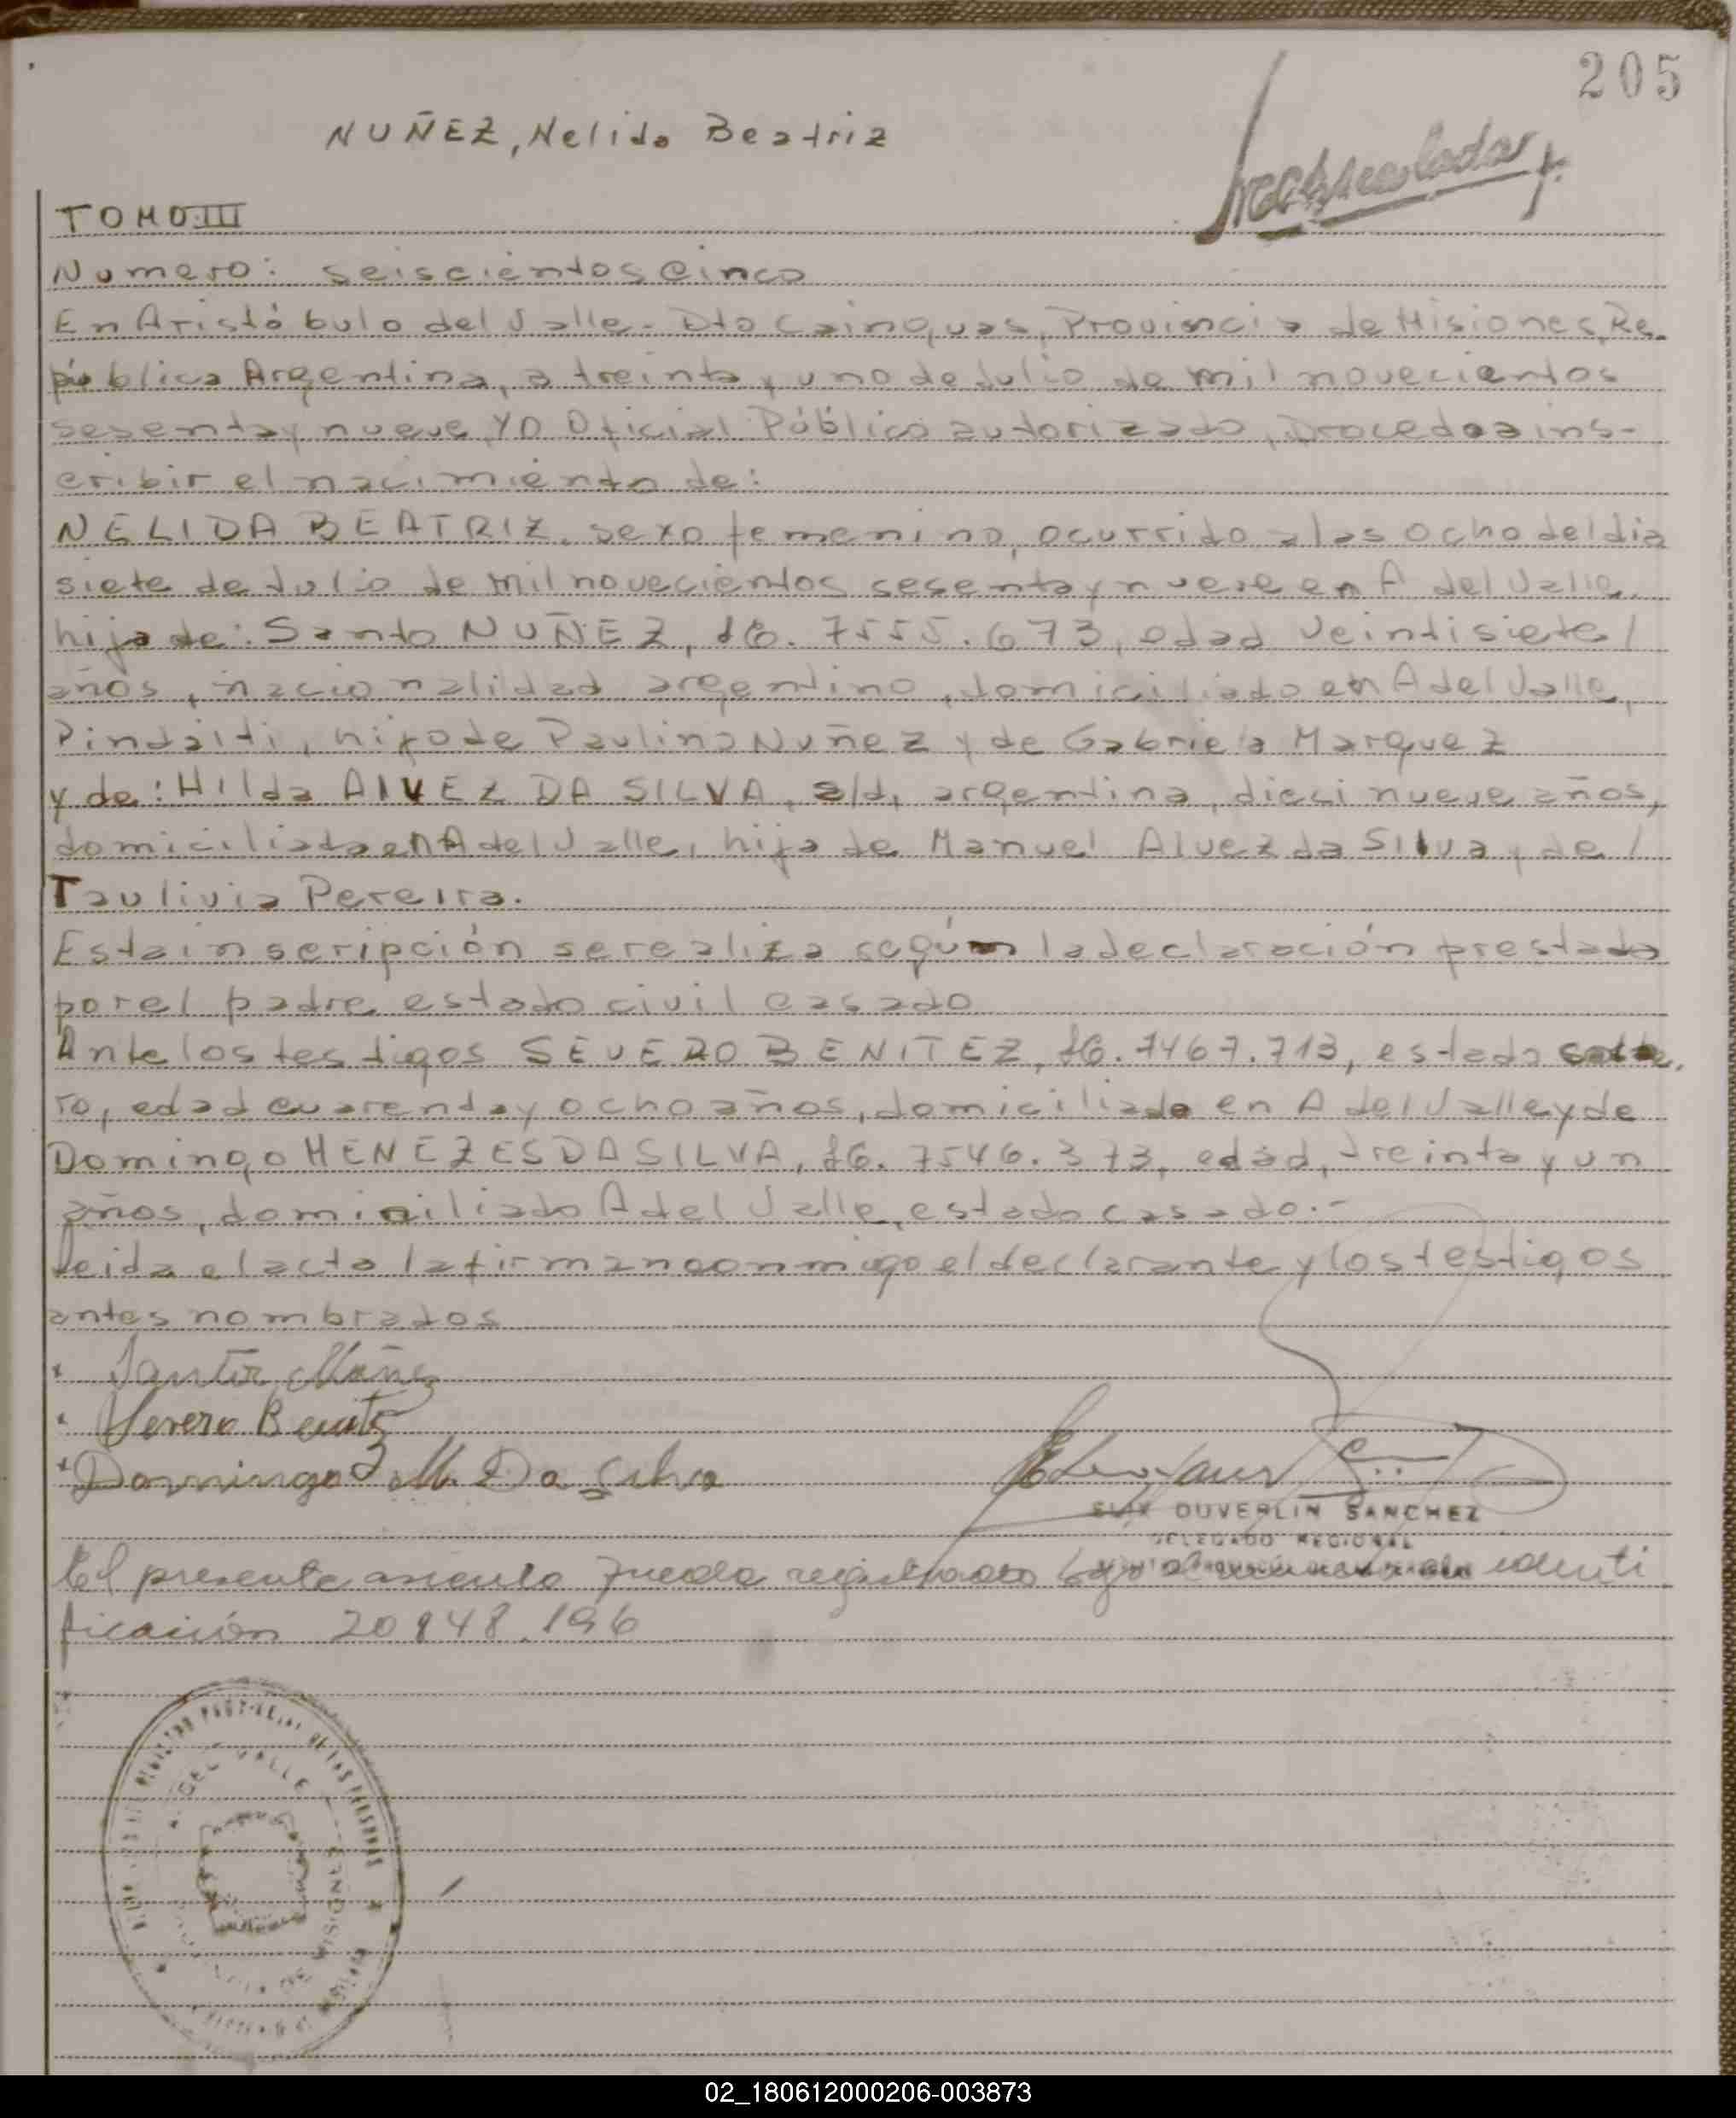 205
NUÑEZ, Nelida Beatriz
TOMO III
Numero: seiscientos cinco
En Aristóbulo del Valle. Dto Cainguas, Provincia de Misiones, Re-
pública Argentina, a treinta y uno de Julio de mil novecientos
sesenta y nueve, Yo Oficial Público autorizado, Procedo a ins-
cribir el nacimiento de:
NELIDA BEATRIZ, sexo femenino, ocurrido a las ocho del dia
siete de Julio de mil novecientos sesenta y nueve en A del Valle,
hija de: Santo NUÑEZ, 7555.673, edad veintisiete/
años, nacionalidad argentino, domiciliado en A del Valle,
Pindaiti, hijo de Paulino Nuñez y de Gabriela Marquez
y de: Hilda AlVEZ DA SILVA, s/d, argentina, diecinueve años,
domiciliada en A del Valle, hija de Manuel Alvez da Silva y de /
Taulivia Pereira.
Esta inscripción se realiza según la declaración prestada
por el padre estado civil casado
Ante los testigos SEVERO BENITEZ, 7467.713, estado solte.
ro, edad cuarenta y ocho años, domiciliado en A del Valle y de
Domingo MENEZES DA SILVA, 7546.373, edad, treinta y un
años, domiciliado A del Valle, estado casado.-
leida el acta la firman conmigo el declarante y los testigos
antes nombrados
Santo Nuñez
Severo Benitez
Domingo M. Da Silva
ELIX DUVERLIN SANCHEZ
DELEGADO REGIONAL
El presente asiento queda registrado bajo identi
ficación 20848.196
REGISTRO PROVINCIAL DE LAS PERSONAS
A. DEL VALLE
MISIONES
02_180612000206-003873